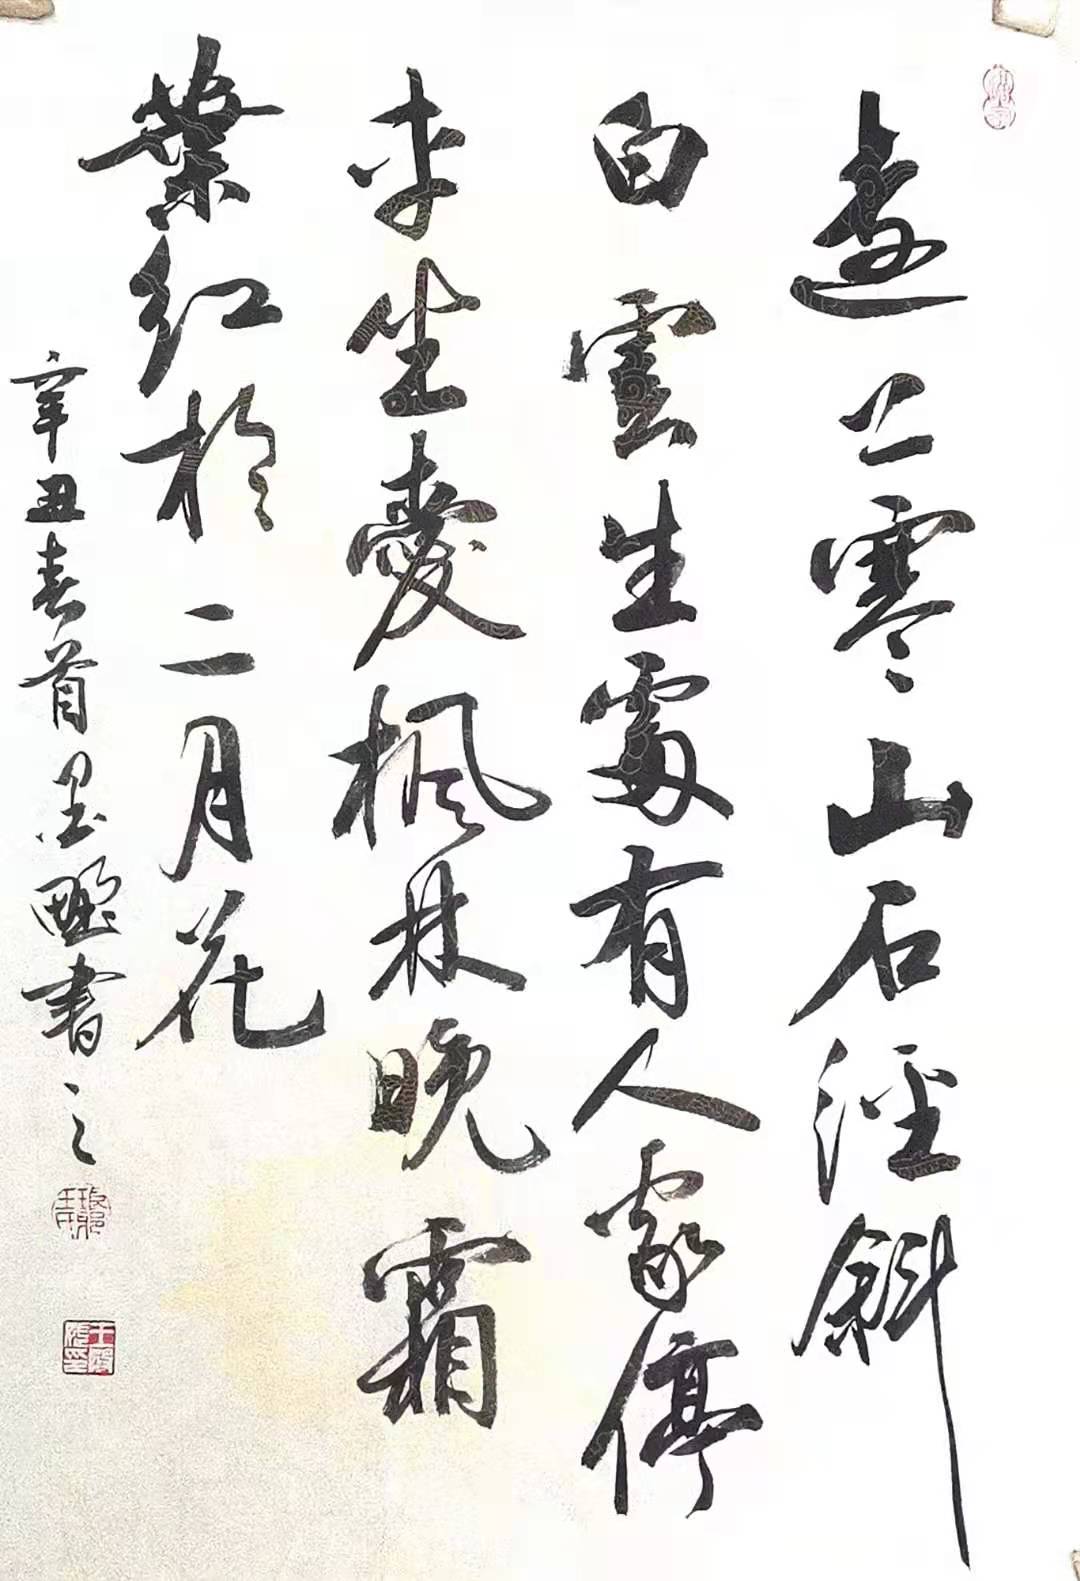 遠上寒山石徑斜
白雲生處有人家停
車坐愛楓林晚霜
葉紅於二月花
辛丑春首墨書之